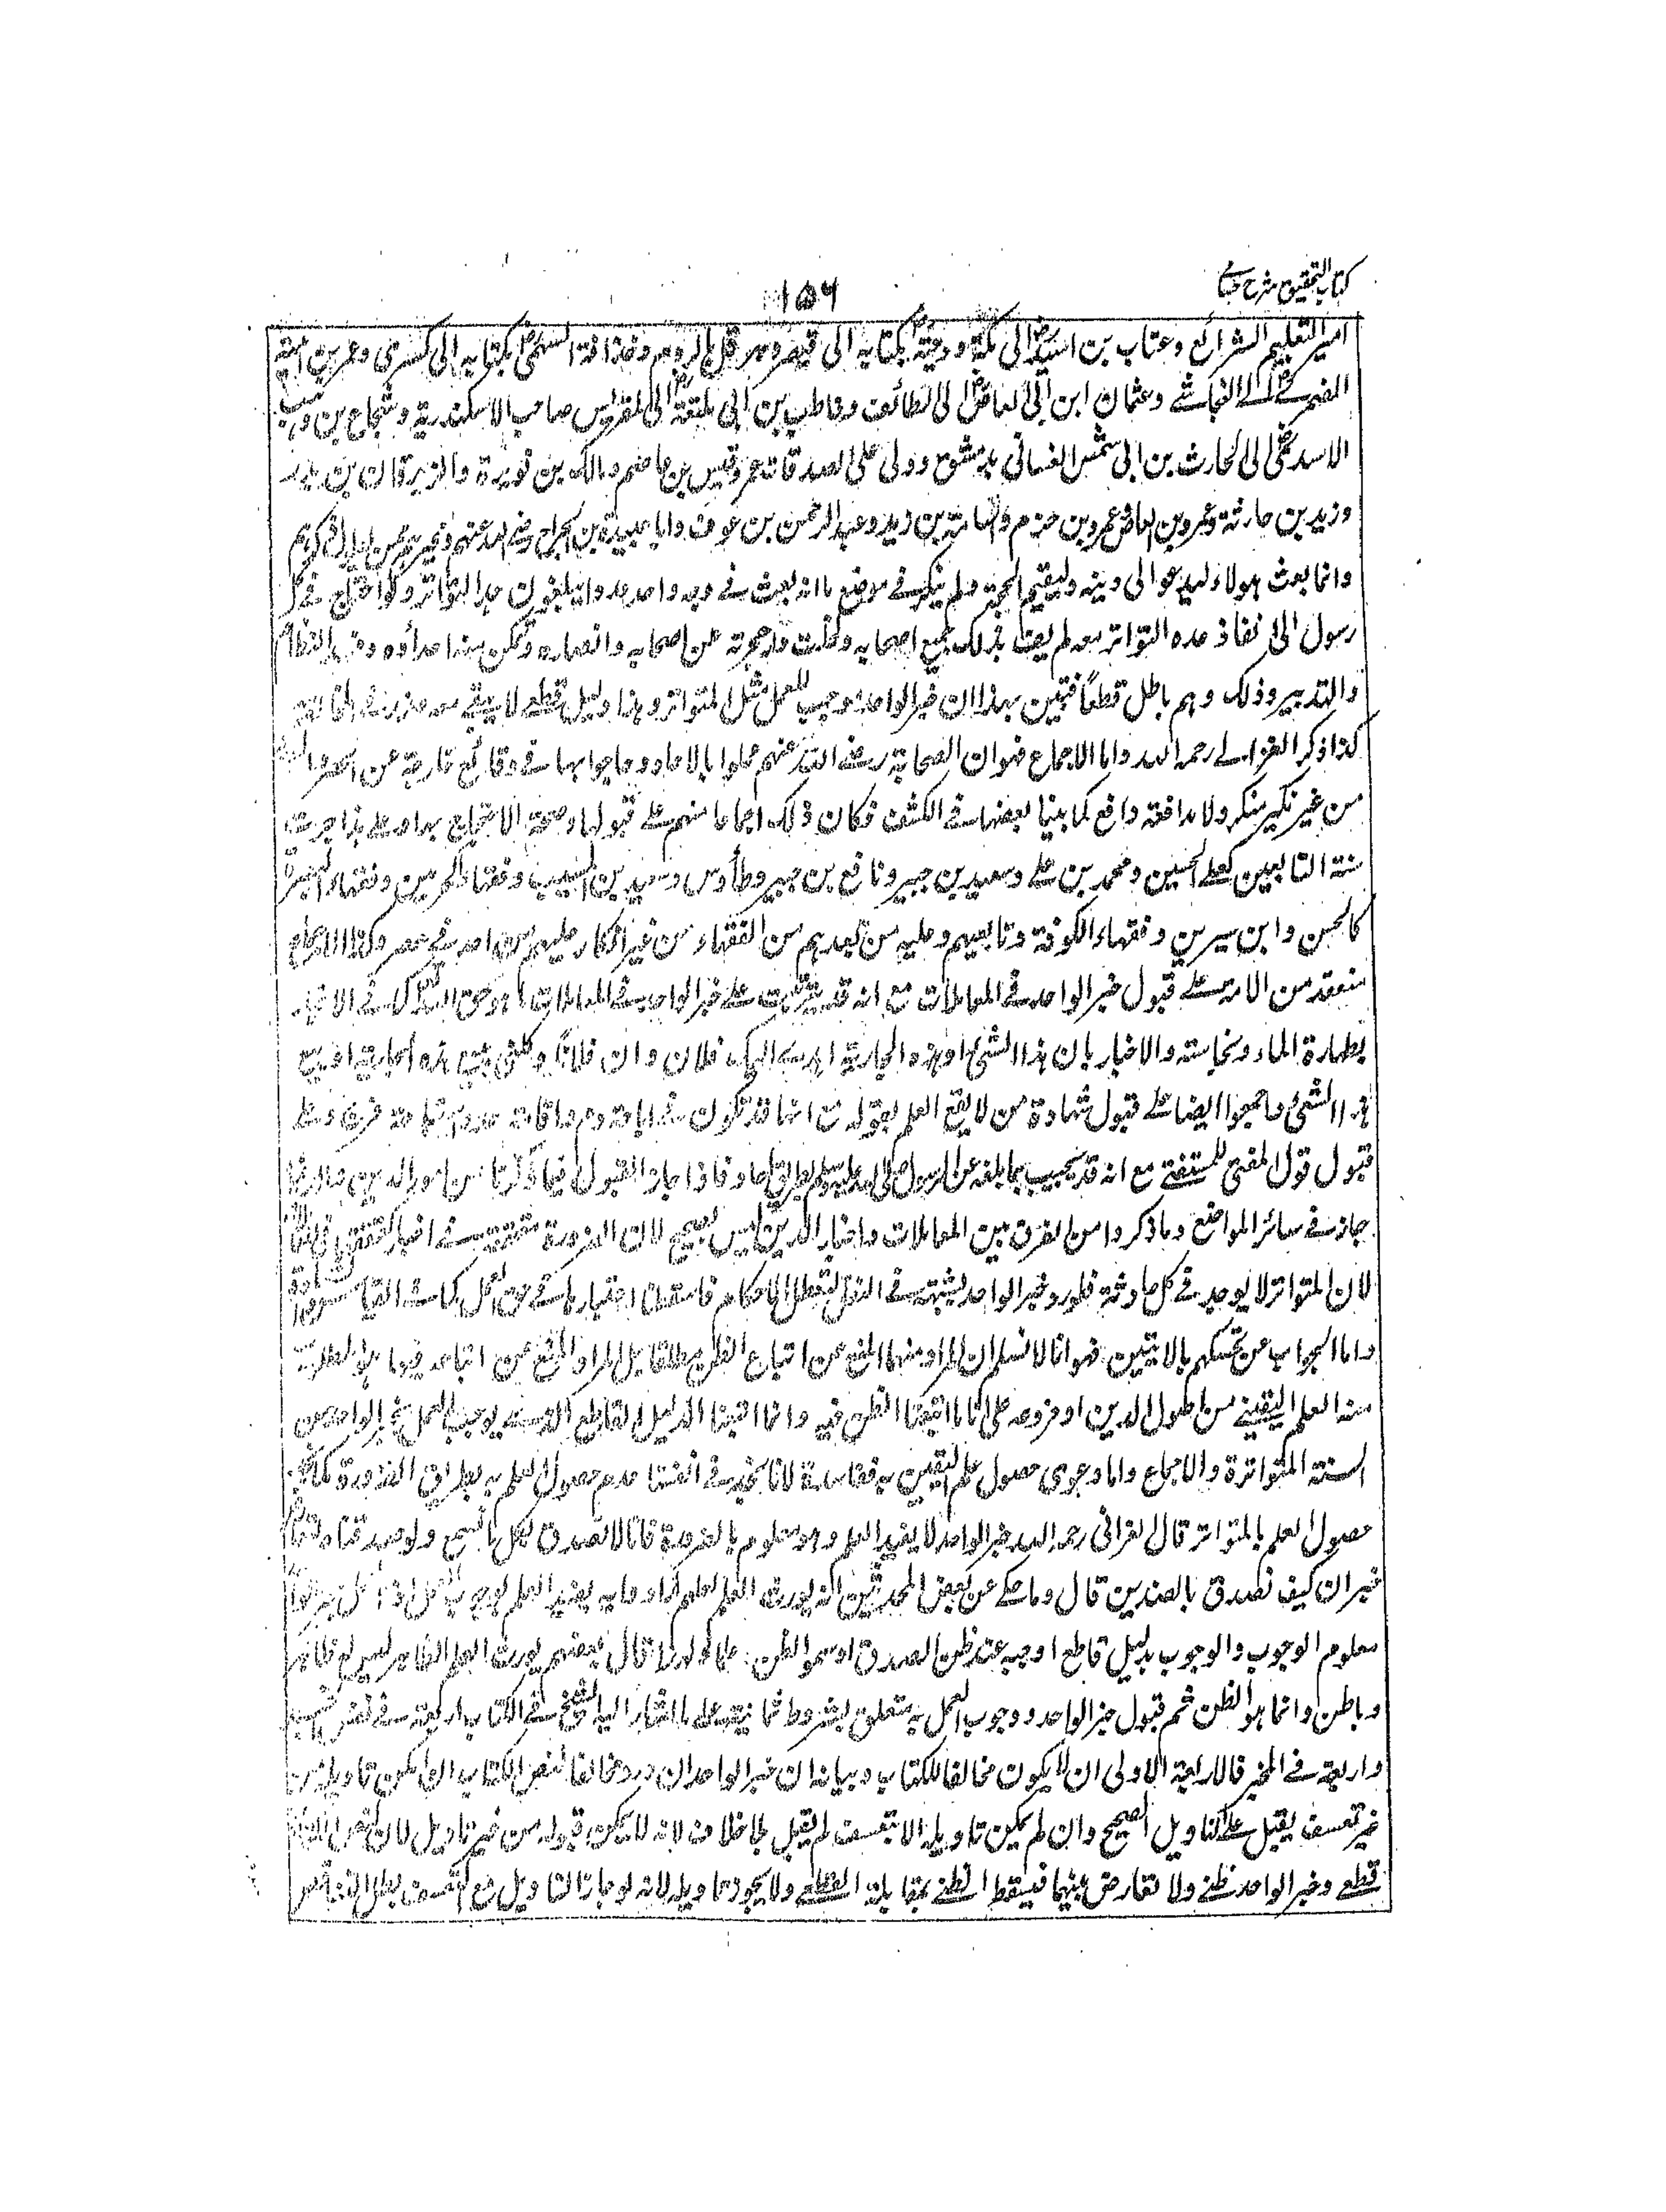 كتاب التحقيق شرح حسامى
١٥٦
اميرا لتعليم الشرائع وعتاب بن اسيد الى مكة ودحية بكتابه الى قيصر وهو هرقل بالروم وحذافة السهمى بكتابه الى كسرى وعمر بن امية
الضمرى الى النجاشى وعثمان ابن ابى العاص الى الطائف وحاطب بن ابى بلتعة الى المقوقس صاحب الاسكندرية وشجاع بن وهب
الاسدى الى الحارث بن ابى شمر الغسانى بدمشق وولى على الصدقات عمر وقيس بن عاصم ومالك بن نويرة والزبرقان بن بدر
وزيد بن حارثة وعمرو بن العاص وعمرو بن حزم واسامة بن زيد وعبد الرحمن بن عوف وابا عبيدة بن الجراح رضى الله عنهم وغيرهم ممن يطول ذكرهم
وانما بعث هولاء ليدعوا الى دينه وليقيم الحجة ولم يذكر فى موضع ما انه بعث فى وجه واحد عددا يبلغون حد التواتر ولو احتاج فى كل
رسول الى انفاذ عدد التواتر معه لم يف بذلك جميع اصحابه وخلت دار هجرته عن اصحابه وانصاره وتمكن منه اعداؤه وفسد النظام
والتدبير وذلك وهم باطل قطعًا فتبين بهذا ان خبر الواحد موجب للعمل مثل المتواتر وهذا دليل قطعى لا يبقى معه عذر فى المخالفة
كذا ذكر الغزالى رحمه الله واما الاجماع فهو ان الصحابة رضى الله عنهم عملوا بالآحاد وحاجوا بها فى وقائع خارجة عن الحصر والعد
من غير نكير منكر ولا مدافعة دافع كما بينا بعضها فى الكشف فكان ذلك اجماعا منهم على قبولها وصحة الاحتجاج بها وعلى هذا جرت
سنة التابعين كعلى بن الحسين ومحمد بن على وسعيد بن جبير ونافع بن جبير وطاؤس وسعيد بن المسيب وفقهاء الحرمين وفقهاء البصرة
كالحسن وابن سيرين وفقهاء الكوفة وتابعيهم وعليه من بعدهم من الفقهاء من غير انكار عليهم من احد فى عصر وكذا الاجماع
منعقد من الامة على قبول خبر الواحد فى المعاملات مع انه قد يترتب على خبر الواحد فى المعاملات ما هو حق الله تعالى كما فى الاخبار
بطهارة الماء ونجاسته والاخبار بان هذا الشئ او هذه الجارية اهدى اليك فلان وان فلانًا وكلنى ببيع هذه الجارية او بيع
هذا الشئ واجمعوا ايضا على قبول شهادة من لا يقع العلم بقوله مع انها قد تكون فى اباحة دم واقامة حد واستباحة فرج وعلى
قبول قول المفتى للمستفتى مع انه قد يجيب بما بلغه عن الرسول صلى الله عليه وسلم بطريق الآحاد فاذا جاز القبول فيما ذكرنا من امور الدين والدنيا
جاز فى سائر المواضع وما ذكروا من الفرق بين المعاملات واخبار الدين ليس بصحيح لان الضرورة متحققة فى اخبار
لان المتواتر لا يوجد فى كل حادثة فلو رد خبر الواحد لشبهة فى النقل لتعطل الاحكام فاسقطنا اعتبارها فى حق العمل كما فى القياس والشهادة
واما الجواب عن تمسكهم بالآيتين فهو انا لا نسلم ان المراد منهما المنع عن اتباع الظن مطلقا بل المراد المنع عن اتباعه فيما هو المطلوب
منه العلم اليقينى من اصول الدين او فروعه على انا ما اتبعنا الظن فيه وانما اتبعنا الدليل القاطع الذى يوجب العمل بخبر الواحد من
السنة المتواترة والاجماع واما دعوى حصول علم اليقين به ففاسدة لانا نجد فى انفسنا عدم حصول العلم به بطريق الضرورة كما نجد
حصول العلم بالمتواتر قال الغزالى رحمه الله خبر الواحد لا يفيد العلم وهو معلوم بالضرورة فانا لا نصدق بكل ما نسمع ولو صدقنا وتعارض
خبران كيف نصدق بالضدين قال وما حكى عن بعض المحدثين انه يورث العلم لعلهم ارادوا به يفيد العلم بوجوب العمل اذ العمل بخبر الواحد
معلوم الوجوب والوجوب بدليل قاطع اوجبه عند ظن الصدق او سموا الظن علما ولهذا قال بعضهم يورث العلم الظاهر ليس له ظاهر
وباطن وانما هو الظن ثم قبول خبر الواحد ووجوب العمل به متعلق بشروط ثمانية على ما اشار اليه الشيخ فى الكتاب اربعة فى نفس الخبر
واربعة فى المخبر فالاربعة الاولى ان لا يكون مخالفا للكتاب وبيانه ان خبر الواحد ان ورد مخالفا لنص الكتاب ان امكن تاويله من
غير تعسف يقبل على التاويل الصحيح وان لم يمكن تاويله الا بتعسف لم يقبل بلا خلاف لانه لا يمكن قبوله من غير تاويل لان نص الكتاب
قطعى وخبر الواحد ظنى ولا تعارض بينهما فيسقط الظنى بمقابلة القطعى ولا يجوز تاويله لانه لو جاز التاويل مع التعسف بطل التناقض